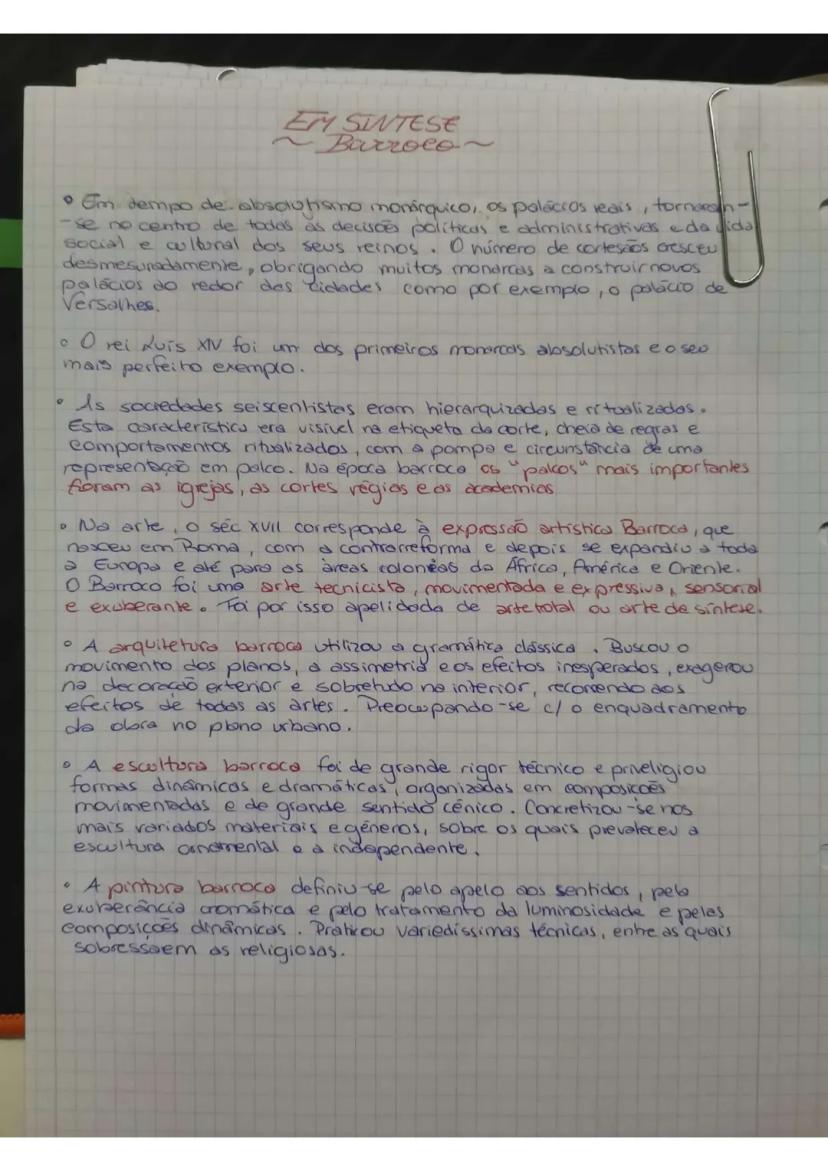 EM SINTESE
~ Barroco ~
• Em tempo de absolutismo monárquico, os palácios reais, tornaram-
-se no centro de todas as decisões políticas e administrativas e da vida
social e cultural dos seus reinos. O número de cortesãos cresceu
desmesuradamente, obrigando muitos monarcas a construir novos
palácios ao redor das cidades como por exemplo, o palácio de
Versalhes.
• O rei Luís XIV foi um dos primeiros monarcas absolutistas e o seu
mais perfeito exemplo.
• As sociedades seiscentistas eram hierarquizadas e ritualizadas.
Esta característica era visível na etiqueta da corte, cheia de regras e
comportamentos ritualizados, com a pompa e circunstância de uma
representação em palco. Na época barroca os "palcos" mais importantes
foram as igrejas, as cortes régias e as academias
• Na arte, o séc XVII corresponde à expressão artística Barroca, que
nasceu em Roma, com a contrarreforma e depois se expandiu a toda
a Europa e até para as áreas coloniais da África, América e Oriente.
O Barroco foi uma arte tecnicista, movimentada e expressiva, sensorial
e exuberante. Foi por isso apelidada de arte total ou arte de síntese.
• A arquitetura barroca utilizou a gramática clássica. Buscou o
movimento dos planos, a assimetria e os efeitos inesperados, exagerou
na decoração exterior e sobretudo na interior, recorrendo aos
efeitos de todas as artes. Preocupando-se c/ o enquadramento
da obra no plano urbano.
• A escultura barroca foi de grande rigor técnico e priveligiou
formas dinâmicas e dramáticas, organizadas em composições
movimentadas e de grande sentido cénico. Concretizou-se nos
mais variados materiais e géneros, sobre os quais prevaleceu a
escultura ornamental e a independente.
• A pintura barroca definiu-se pelo apelo aos sentidos, pela
exuberância cromática e pelo tratamento da luminosidade e pelas
composições dinâmicas. Praticou variedíssimas técnicas, entre as quais
sobressaem as religiosas.